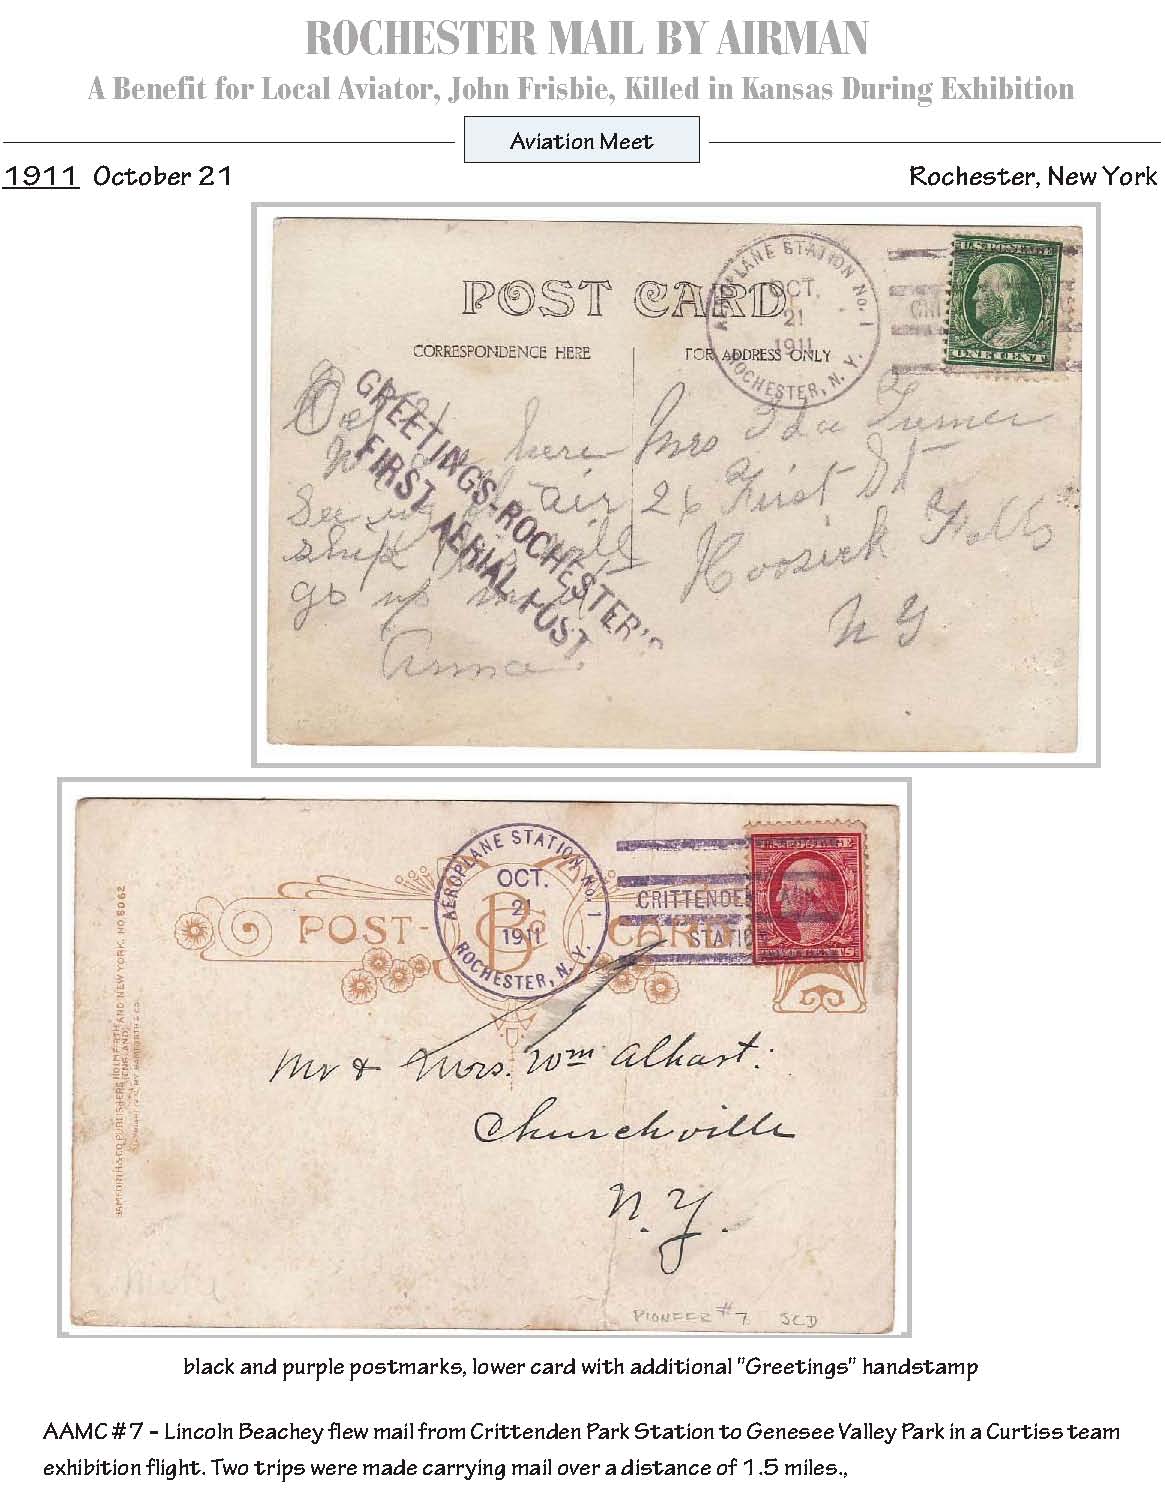 ROCHESTER MAIL BY AIRMAN
A Benefit for Local Aviator, John Frisbie, Killed in Kansas During Exhibition
Aviation Meet
1911 October 21
Rochester, New York
POST CARD
CORRESPONDENCE HERE
FOR ADDRESS ONLY
AEROPLANE STATION No. 1
OCT.
21
1911
ROCHESTER, N. Y.
U.S. POSTAGE
ONE CENT
GREETINGS-ROCHESTER'S
FIRST AERIAL POST
Oct 21
here
air
ship
go up
Anna
Mrs Ida Turner
26 First St
Hoosick Falls
N Y
POST-CARD
AEROPLANE STATION No. 1
OCT.
21
1911
ROCHESTER, N. Y.
CRITTENDEN
STATION
U.S. POSTAGE
Mr & Mrs. Wm Alhart.
Churchville
N. Y.
PIONEER #7 SCD
black and purple postmarks, lower card with additional "Greetings" handstamp
AAMC #7 - Lincoln Beachey flew mail from Crittenden Park Station to Genesee Valley Park in a Curtiss team
exhibition flight. Two trips were made carrying mail over a distance of 1.5 miles.,